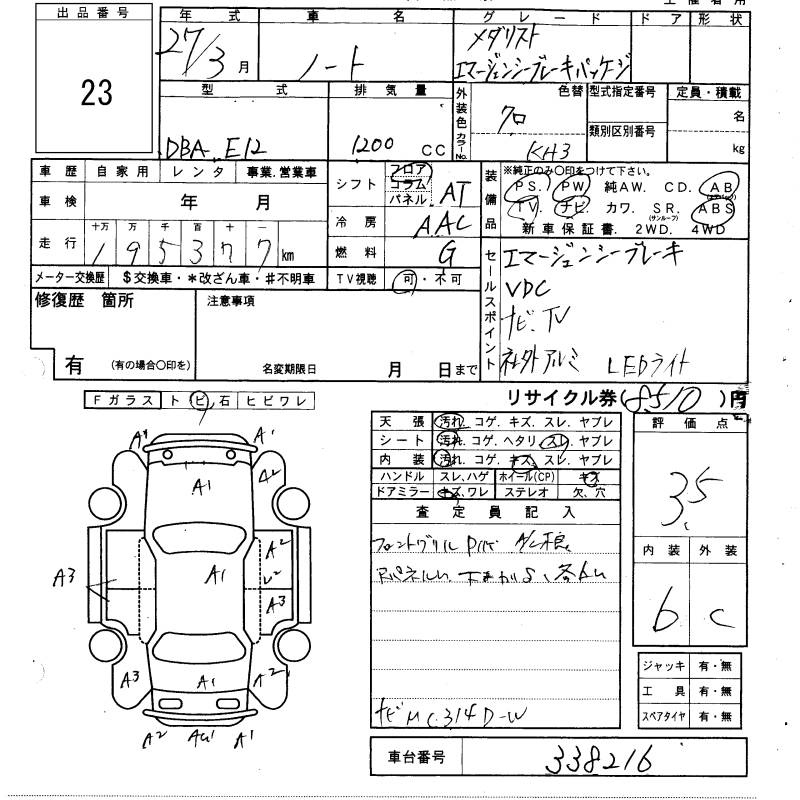 出品番号
23
年 式 車 名 グレード ドア 形状
27/3 月 ノート メダリスト
エマージェンシーブレーキパッケージ
型 式 排気量 外装色 カラーNo. 色替 型式指定番号 定員・積載
クロ 名
類別区別番号
DBA E12 1200 CC KH3 kg
車歴 自家用 レンタ 事業.営業車
車検 年 月
走行 十万 万 千 百 十 一
1 9 5 3 7 7 km
メーター交換歴 $交換車・*改ざん車・#不明車
シフト フロア コラム パネル AT
冷房 AAC
燃料 G
TV視聴 可・不可
装備品
※純正のみ〇印をつけて下さい。
PS. PW 純AW. CD. AB
TV. ナビ カワ. SR.(サンルーフ) ABS
新車保証書. 2WD. 4WD
セールスポイント
エマージェンシーブレーキ
VDC
ナビ、TV
社外アルミ LEDライト
修復歴 箇所
有 (有の場合〇印を)
注意事項
名変期限日 月 日まで
リサイクル券(8510)円
Fガラス ト ビ 石 ヒビワレ
A1 A1
A1 A2
A2
A1 A2
A3 A3
A3 A1 A2
A2 A1
天張 汚れ. コゲ. キズ. スレ. ヤブレ
シート 汚れ. コゲ. ヘタリ. スレ. ヤブレ
内装 汚れ. コゲ. キズ. スレ. ヤブレ
ハンドル スレ,ハゲ ホイール(CP) キズ
ドアミラー キズ,ワレ ステレオ 欠、穴
査定員記入
ナビMC314D-W
評価点
3.5
内装 外装
6 C
ジャッキ 有・無
工具 有・無
スペアタイヤ 有・無
車台番号 338216